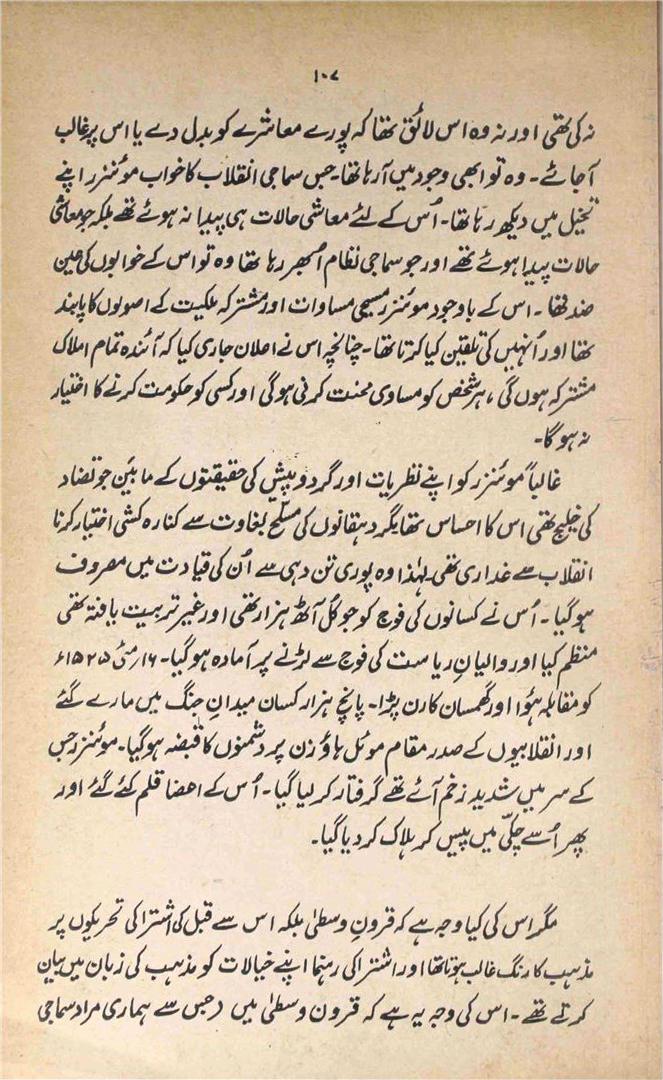 ۱۰۷
نہ کی تھی اور نہ وہ اس لائق تھا کہ پورے معاشرے کو بدل دے یا اس پر غالب
آ جائے۔ وہ تو ابھی وجود میں آ رہا تھا۔ جس سماجی انقلاب کا خواب موئنزر اپنے
تخیل میں دیکھ رہا تھا۔ اُس کے لئے معاشی حالات ہی پیدا نہ ہوئے تھے بلکہ جو معاشی
حالات پیدا ہوئے تھے اور جو سماجی نظام اُبھر رہا تھا وہ تو اس کے خوابوں کی عین
ضد تھا۔ اس کے باوجود موئنزر مسیحی مساوات اور مشترکہ ملکیت کے اصولوں کا پابند
تھا اور اُنہیں کی تلقین کیا کرتا تھا۔ چنانچہ اس نے اعلان جاری کیا کہ آئندہ تمام املاک
مشترکہ ہوں گی، ہر شخص کو مساوی محنت کرنی ہوگی اور کسی کو حکومت کرنے کا اختیار
نہ ہو گا۔
غالباً موئنزر کو اپنے نظریات اور گرد و پیش کی حقیقتوں کے مابین جو تضاد
کی خلیج تھی اس کا احساس تھا مگر دہقانوں کی مسلّح بغاوت سے کنارہ کشی اختیار کرنا
انقلاب سے غداری تھی۔ لہٰذا وہ پوری تن دہی سے اُن کی قیادت میں مصروف
ہو گیا۔ اُس نے کسانوں کی فوج کو جو کُل آٹھ ہزار تھی اور غیر تربیت یافتہ تھی
منظم کیا اور والیانِ ریاست کی فوج سے لڑنے پر آمادہ ہو گیا۔ ۱۶؍ مئی ۱۵۲۵ء
کو مقابلہ ہوا اور گھمسان کا رن پڑا۔ پانچ ہزار کسان میدانِ جنگ میں مارے گئے
اور انقلابیوں کے صدر مقام موئل ہاؤزن پر دشمنوں کا قبضہ ہو گیا۔ موئنزر جس
کے سر میں شدید زخم آئے تھے گرفتار کر لیا گیا۔ اُس کے اعضا قلم کئے گئے اور
پھر اُسے چکّی میں پیس کر ہلاک کر دیا گیا۔
مگر اس کی کیا وجہ ہے کہ قرونِ وسطیٰ بلکہ اس سے قبل کی اشتراکی تحریکوں پر
مذہب کا رنگ غالب ہوتا تھا اور اشتراکی رہنما اپنے خیالات کو مذہب کی زبان میں بیان
کرتے تھے۔ اس کی وجہ یہ ہے کہ قرون وسطیٰ میں (جس سے ہماری مراد سماجی